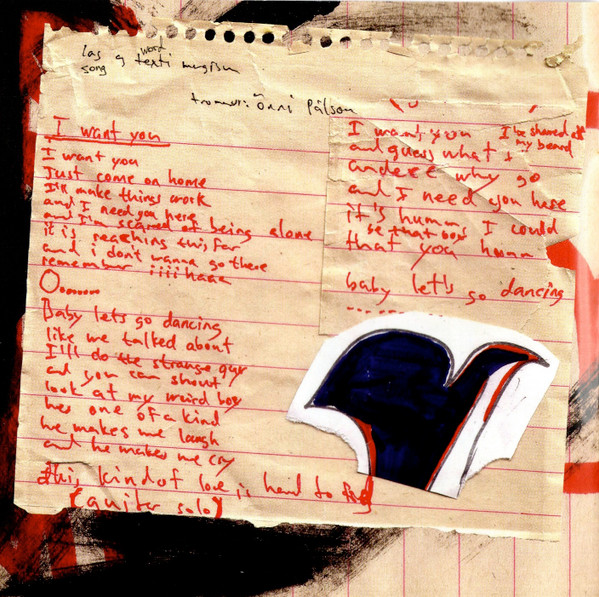 lag og texti mugison
word
song
trommur: Önni Pálson
I want you
I want you
Just come on home
I'll make things work
and I need you here
and I'm scared of being alone
it is reaching this far
and i don't wanna go there
remember iiiihaaa
Oooooooo
Baby lets go dancing
like we talked about
I'll do the strange guy
and you can shout
look at my weird boy
hes one of a kind
he makes me laugh
and he makes me cry
this kind of love is hard to find
[guitar solo]
I want you I be shaved off
my beard
and guess what I
why go
and I need you here
it's humm I could
be that boy
that you humm
baby let's go dancing